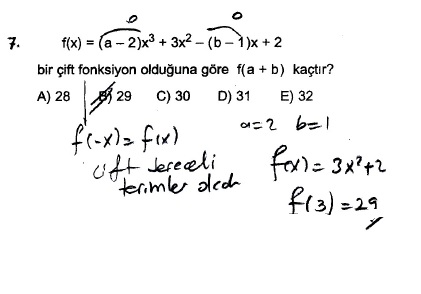 0 0
7. f(x) = (a – 2)x³ + 3x² – (b – 1)x + 2
bir çift fonksiyon olduğuna göre f(a + b) kaçtır?
A) 28 B) 29 C) 30 D) 31 E) 32
a=2 b=1
f(-x) = f(x)
çift dereceli
terimler olcak
f(x) = 3x²+2
f(3) = 29